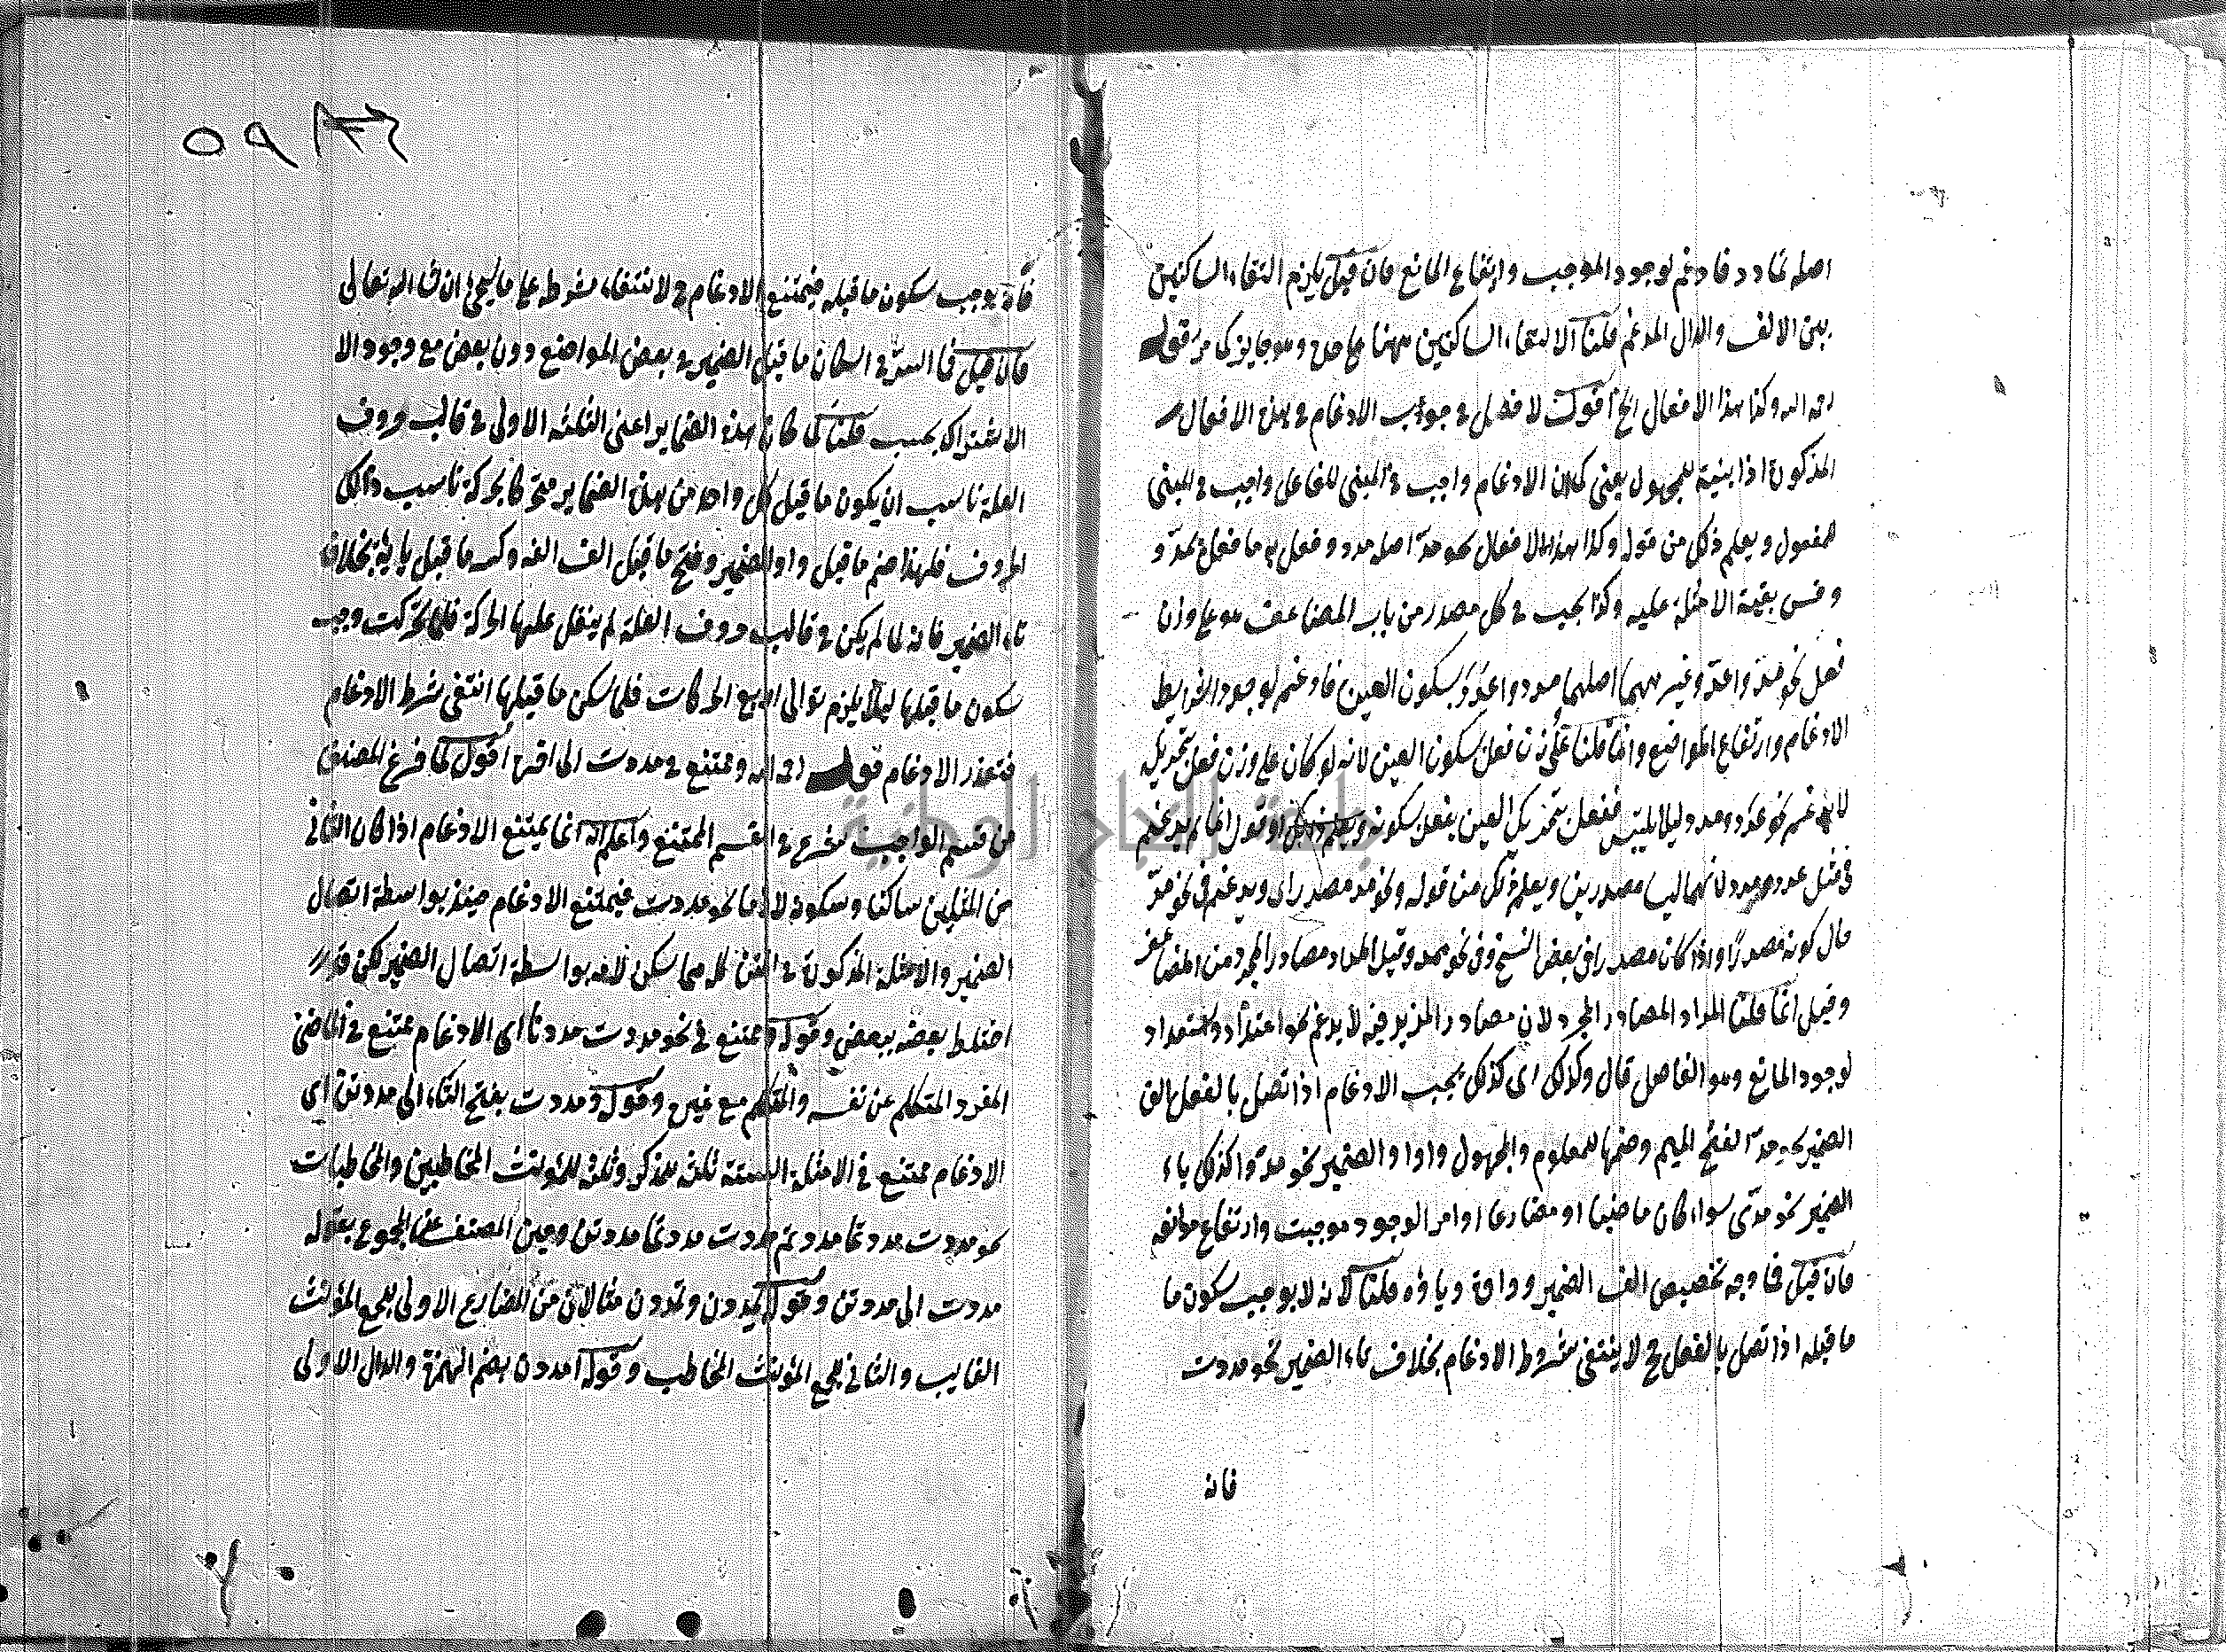 اصله تمادد فادغم لوجود الموجب وارتفاع المانع فان قيل يلزم التقاء الساكنين
بين الالف والدال المدغم قلنا الالتقاء الساكنين ههنا على حده وهو جايز كما مر قوله
رحمه الله وكذا هذا الافعال الخ اقول لا فصل في وجوب الادغام في هذه الافعال
المذكورة اذا بنيته للمجهول يعني كما ان الادغام واجب في المبني للفاعل واجب في المبني
للمفعول ويعلم ذلك من قوله وكذا هذه الافعال نحو مدّ اصله مدد وفعل به ما فعل في يمدّ و
وقس بقية الامثلة عليه وكذا يجب في كل مصدر من باب المضاعف هو على وزن
فعل نحو مدّ واعدّ وغيرهما اصلهما مدد واعدد بسكون العين فادغم لوجود الشرايط
الادغام وارتفاع الموانع وانما قلنا على وزن فعل بسكون العين لانه لو كان على وزن فعل بتحريك
لا يدغم نحو عدد ومدد ليلا يلتبس ففعل بتحريك العين بفعل بسكونه ويعلم ذلك او قول انما لم يدغم
في مثل عدد ومدد لانهما ليسا مصدرين ويعلم ذلك من قوله ونحو مد مصدرا اي ويدغم في نحو مدّ
حال كونه مصدرًا واذا كان مصدرا في بعض النسخ وفي نحو مد وقيل المراد مصادر المجرد من المضاعف
وقيل انما قلنا المراد المصادر المجرد لان مصادر المزيد فيه لا يدغم نحو اعتداد واستعداد
لوجود المانع وهو الفاصل قال وكذلك اي كذلك يجب الادغام اذا تصل بالفعل الف
الضمير نحو مدّا بفتح الميم وضمها للمعلوم والمجهول واوا والضمير نحو مدّوا كذلك ياء
الضمير نحو مدّي سواء كان ماضيا او مضارعا او امر الوجود موجبه وارتفاع موانعه
فان قيل فما وجه تخصيص الف الضمير وواوه وياؤه قلنا لانه لا يوجب سكون ما
ما قبله اذا تصل بالفعل فح لا ينتفى شروط الادغام بخلاف تاء الضمير نحو مددت
فانه
٥٩
فانه يوجب سكون ما قبله فيمتنع الادغام فح لانتفاء شرطه على ما يجيء ان شاء الله تعالى
فان قيل فما السرّ في اسكان ما قبل الضمير في بعض المواضع دون بعض مع وجود الا
الاشتراك بحسب قلنا لما كان هذه الضماير اعني الثلثه الاولى في قالب حروف
العلة ناسب ان يكون ما قبل كل واحد من هذه الضماير متحركا بحركة تناسب ذلك
الحروف فلهذا ضم ما قبل واو الضمير وفتح ما قبل الف الفه وكسر ما قبل يايه بخلاف
تاء الضمير فانه لما لم يكن في قالب حروف العلة لم ينقل عليها الحركة فلما تحركت وجب
سكون ما قبلها ليلا يلزم توالى اربع الحركات فلما سكن ما قبلها انتفى شرط الادغام
فتعذر الادغام قوله رحمه الله وممتنع في مددت الى اخره اقول لما فرغ المصنف
من قسم الواجب شرع في القسم الممتنع واعلم انه انما يمتنع الادغام اذا كان الثاني
من المثلين ساكنا وسكونه لازما نحو مددت فيمتنع الادغام حينئذ بواسطة اتصال
الضمير والامثلة المذكورة في المتن كله مما سكن لامه بواسطة اتصال الضمير لكن قدر
اختلط بعضه ببعض وقوله وممتنع في نحو مددت مددنا اي الادغام ممتنع في الماضي
المفرد المتكلم عن نفسه والمتكلم مع غيره وقوله ومددت بفتح التاء الى مددتن اي
الادغام ممتنع في الامثلة الستة ثلثه للمذكر وثلثه للمؤنث المخاطبين والمخاطبات
نحو مددت مددتما مددتم مددت مددتما مددتن وبين المصنف عن المجموع بقوله
مددت الى مددتن وقوله يمددن وتمددن مثالان من المضارع الاولى لجمع المؤنث
الغايب والثاني لجمع المؤنث المخاطب وقوله امددن بضم الهمزة والدال الاولى
جامعة النجاح الوطنية